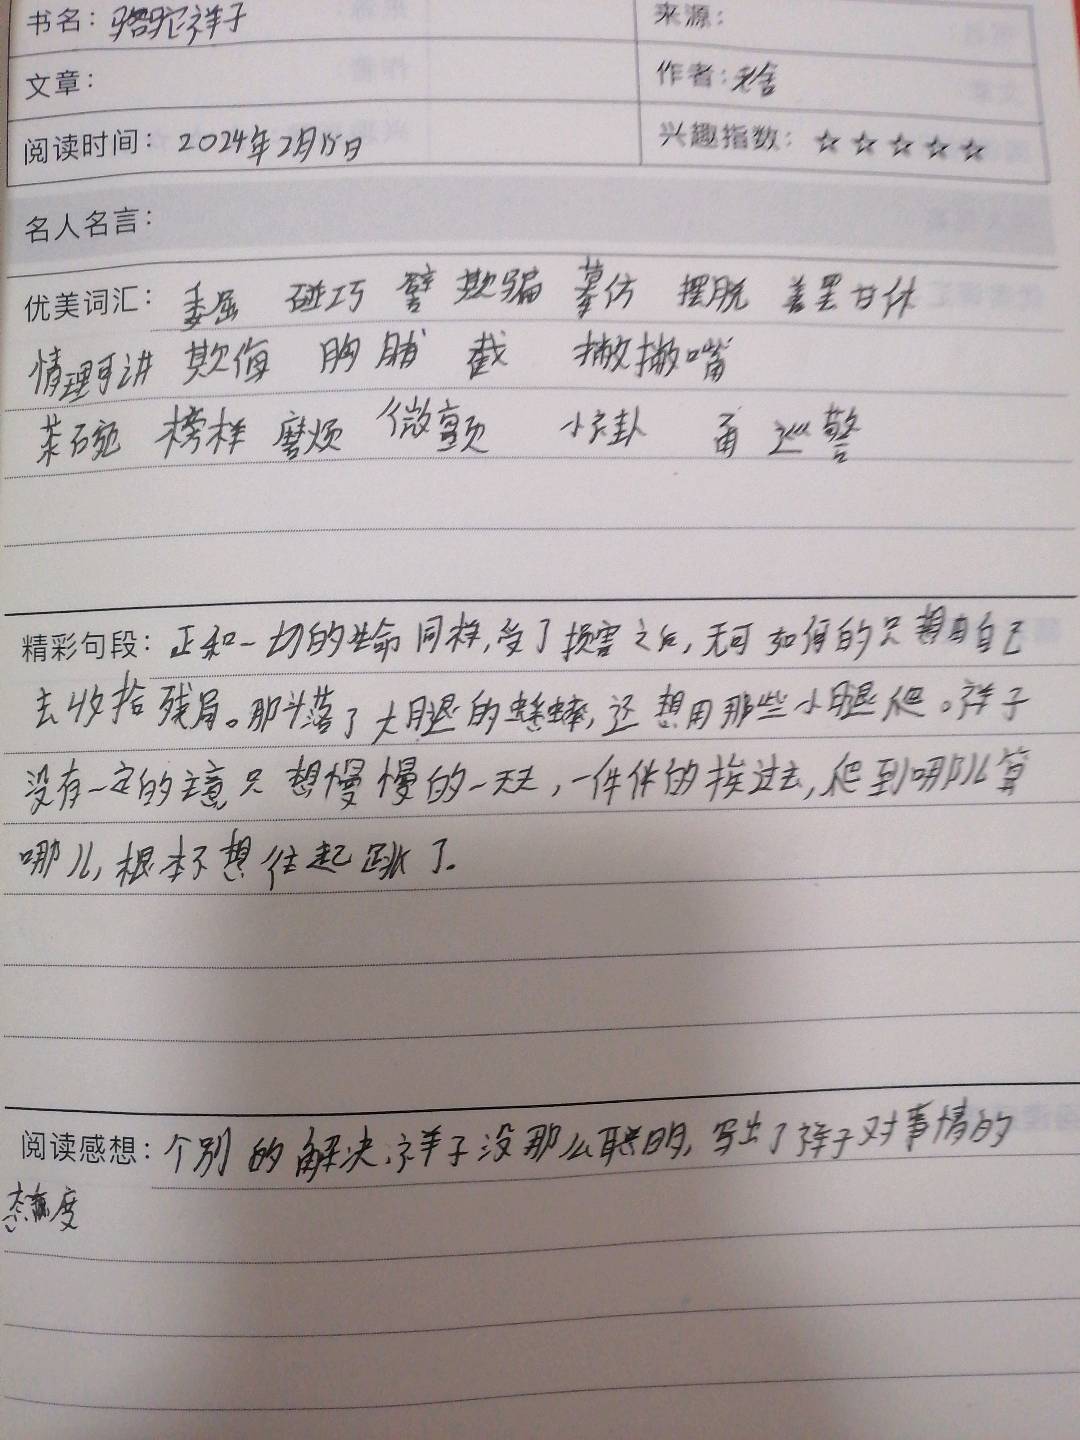 书名：骆驼祥子 来源：
文章： 作者：老舍
阅读时间：2024年2月15日 兴趣指数：☆☆☆☆☆
名人名言：
优美词汇：委屈 碰巧 譬 欺骗 摹仿 摆脱 善罢甘休
情理可讲 欺侮 胸脯 截 撇撇嘴
茶碗 榜样 磨烦 微颤 小褂 甭 巡警
精彩句段：正和一切的生命同样，受了损害之后，无可如何的只想由自己
去收拾残局。那斗落了大腿的蟋蟀，还想用那些小腿爬。祥子
没有一定的主意，只想慢慢的一天天，一件件的挨过去，爬到哪儿算
哪儿，根本不想往起跳了。
阅读感想：个别的解决，祥子没那么聪明，写出了祥子对事情的
态度